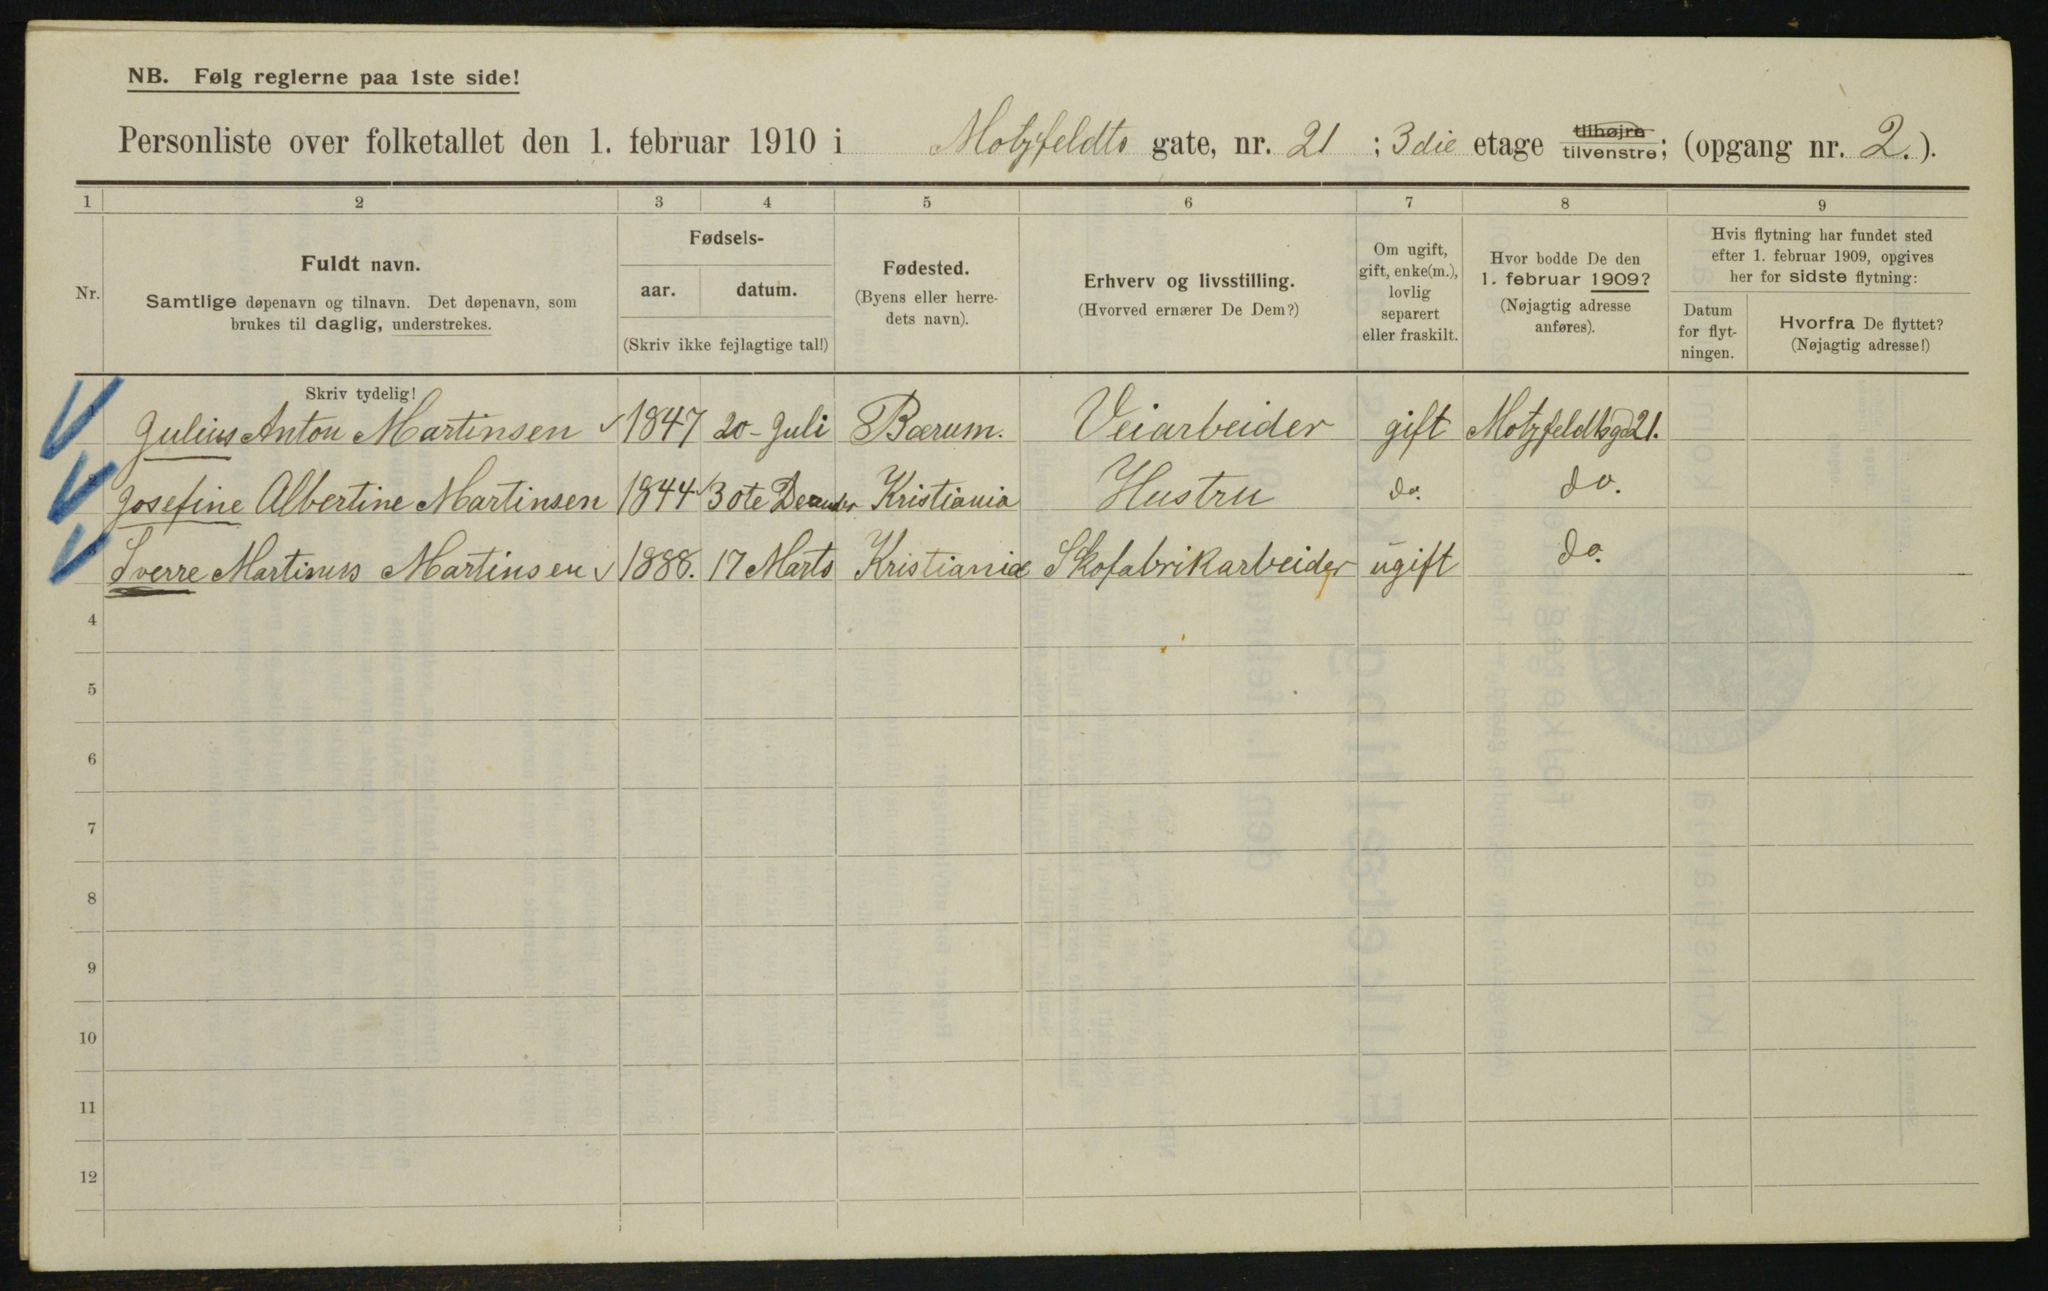 NB. Følg reglerne paa 1ste side!
Personliste over folketallet den 1. februar 1910 i Motzfeldts gate, nr. 21 ; 3die etage tilhøjre tilvenstre; (opgang nr. 2.).
1 2 3 4 5 6 7 8 9
Nr.
Fuldt navn.
Samtlige døpenavn og tilnavn. Det døpenavn, som
brukes til daglig, understrekes.
Fødsels-
aar. datum.
(Skriv ikke fejlagtige tal!)
Fødested.
(Byens eller herre-
dets navn).
Erhverv og livsstilling.
(Hvorved ernærer De Dem?)
Om ugift,
gift, enke(m.),
lovlig
separert
eller fraskilt.
Hvor bodde De den
1. februar 1909?
(Nøjagtig adresse
anføres).
Hvis flytning har fundet sted
efter 1. februar 1909, opgives
her for sidste flytning:
Datum
for flyt-
ningen.
Hvorfra De flyttet?
(Nøjagtig adresse!)
Skriv tydelig!
1 Julius Anton Martinsen 1847 20- Juli Bærum. Veiarbeider gift Motzfeldtsgd 21.
2 Josefine Albertine Martinsen 1844 30te Kristiania Hustru do. do.
3 Sverre Martinus Martinsen 1888. 17 Marts Kristiania Skofabrikarbeider ugift do.
4
5
6
7
8
9
10
11
12